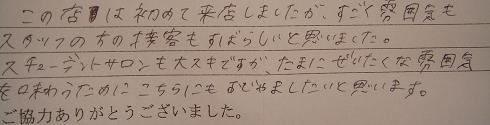 この店は初めて来店しましたが、すごく雰囲気も
スタッフの方の接客もすばらしいと思いました。
スチューデントサロンも大スキですが、たまにぜいたくな雰囲気
を味わうためにこちらにもおじゃましたいと思います。
ご協力ありがとうございました。